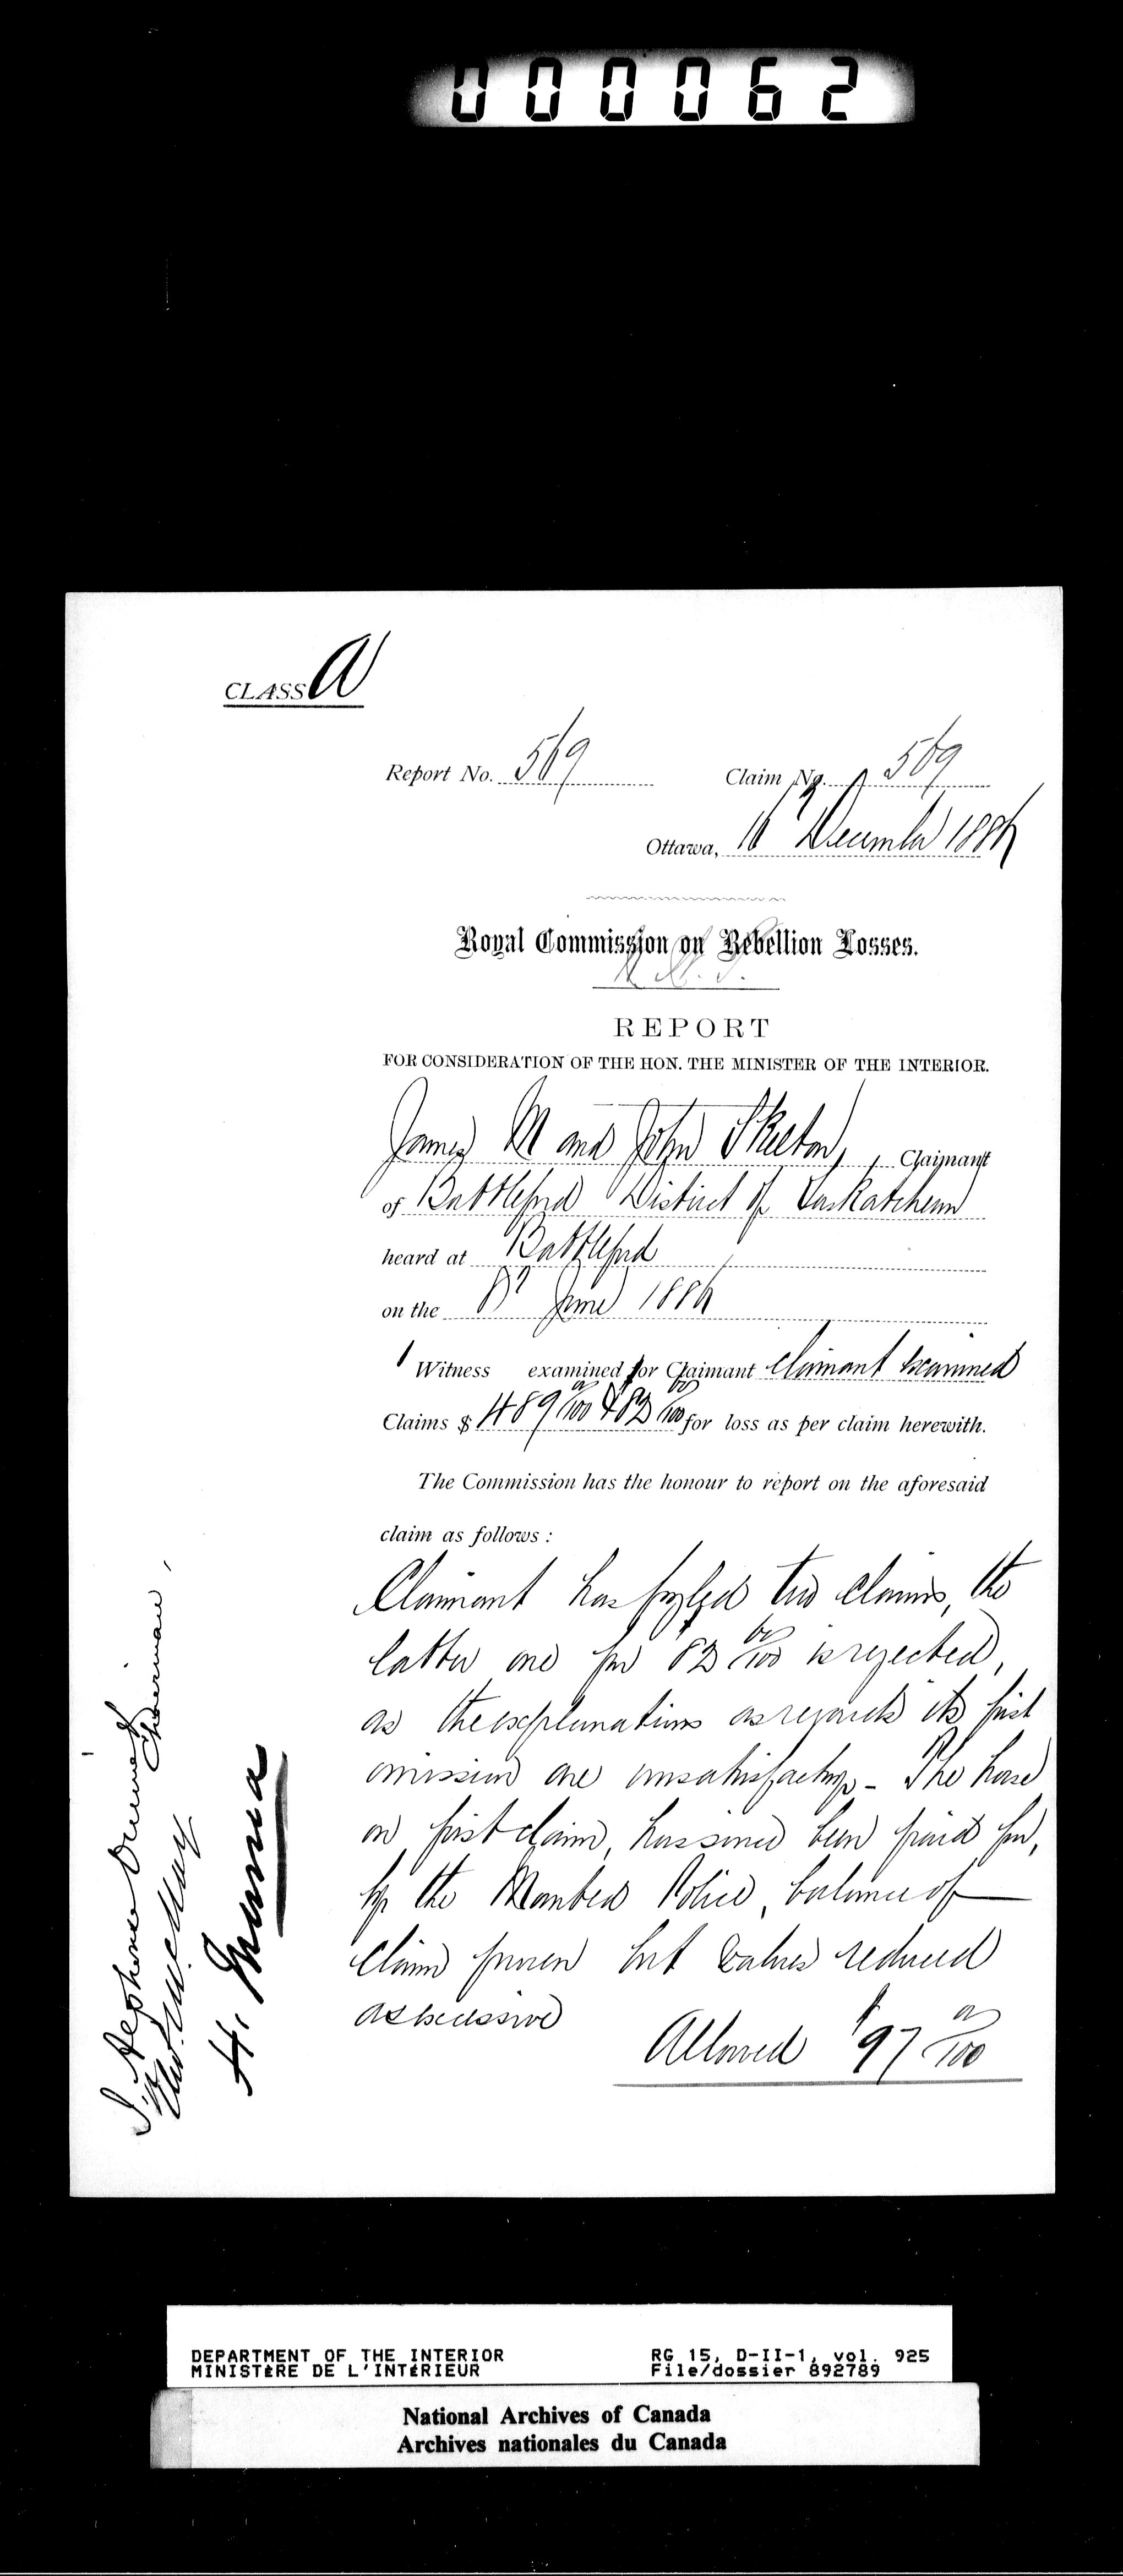 000062
CLASS A
Report No. 569 Claim No. 569
Ottawa, 16 December 1886
Royal Commission on Rebellion Losses.
REPORT
FOR CONSIDERATION OF THE HON. THE MINISTER OF THE INTERIOR.
James M and John Skelton, Claimant
of Battleford District of Saskatchewan
heard at Battleford
on the 8th June 1886
1 Witness examined for Claimant Claimant Examined
Claims $ 489 00/100 & 82 60/100 for loss as per claim herewith.
The Commission has the honour to report on the aforesaid
claim as follows:
Claimant has fyled two claims, the
latter one for 82 60/100 is rejected,
as the explanations as regards its first
omission are unsatisfactory - The horse
on first claim, has since been paid for,
by the Mounted Police, balance of
claim proven but values reduced
as excessive
Allowed $97 00/100
J. Alphonse Ouimet
Chairman,
Wm. McMay
H. Muma
DEPARTMENT OF THE INTERIOR
MINISTÈRE DE L'INTÉRIEUR
RG 15, D-II-1, vol. 925
File/dossier 892789
National Archives of Canada
Archives nationales du Canada